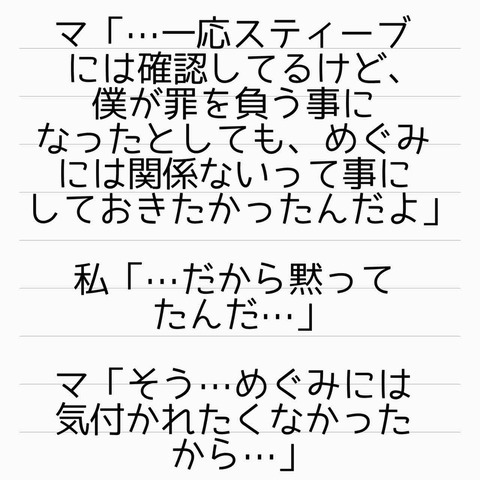 マ「…一応スティーブ
には確認してるけど、
僕が罪を負う事に
なったとしても、めぐみ
には関係ないって事に
しておきたかったんだよ」
私「…だから黙って
たんだ…」
マ「そう…めぐみには
気付かれたくなかった
から…」